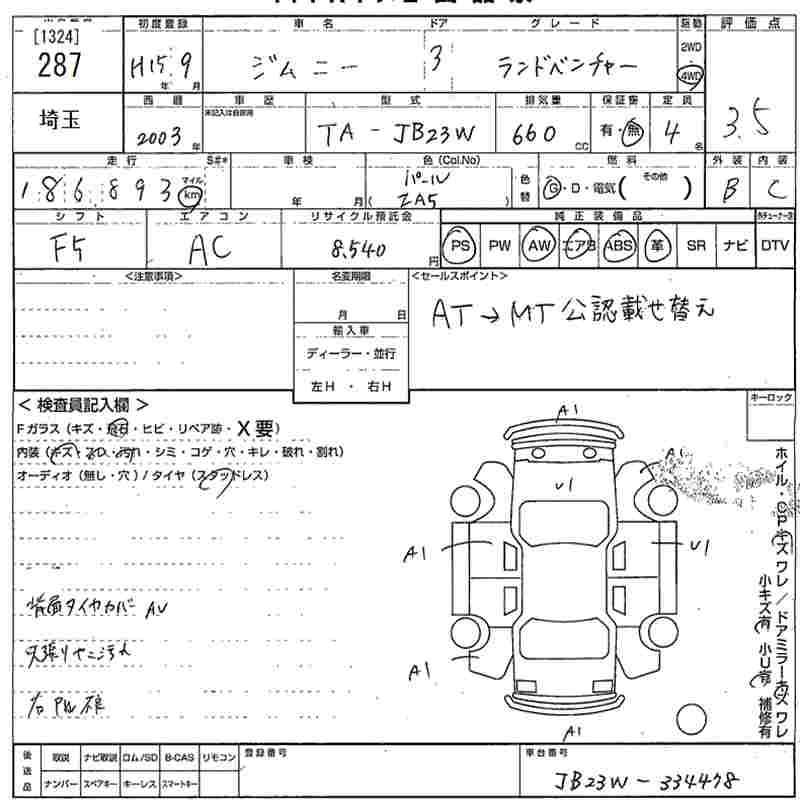 [1324]
287
初度登録 車名 ドア グレード 駆動 評価点
H15 年 9 月 ジムニー 3 ランドベンチャー 2WD 4WD 3.5
埼玉
西暦 車歴 型式 排気量 保証書 定員
2003年 未記入は自家用 TA-JB23W 660 CC 有・無 4名
走行 S#* 車検 色(Cal.No) 色替 燃料 外装 内装
186,893 マイル km 年 月 パール ( ZA5 ) G・D・電気( その他 ) B C
シフト エアコン リサイクル預託金 純正装備品
F5 AC 8,540円 PS PW AW エアB ABS 革 SR ナビ DTV
<注意事項> 名変期限 <セールスポイント>
月 日 AT→MT公認載せ替え
輸入車
ディーラー・並行
左H・右H
<検査員記入欄> キーロック
Fガラス(キズ・飛石・ヒビ・リペア跡・X要)
内装(キズ・スレ・汚れ・シミ・コゲ・穴・キレ・破れ・割れ)
オーディオ(無し・穴)/タイヤ(スタッドレス)
A1
A1
U1
A1
U1
A1
A1
ホイル・CPキズワレ/ドアミラーキズワレ
小キズ有 小U有 補修有
背面タイヤカバー AU
天張りヤニ汚れ
後送品 取説 ナビ取説 ロム/SD B-CAS リモコン 登録番号 車台番号
ナンバー スペアキー キーレス スマートキー JB23W-334478